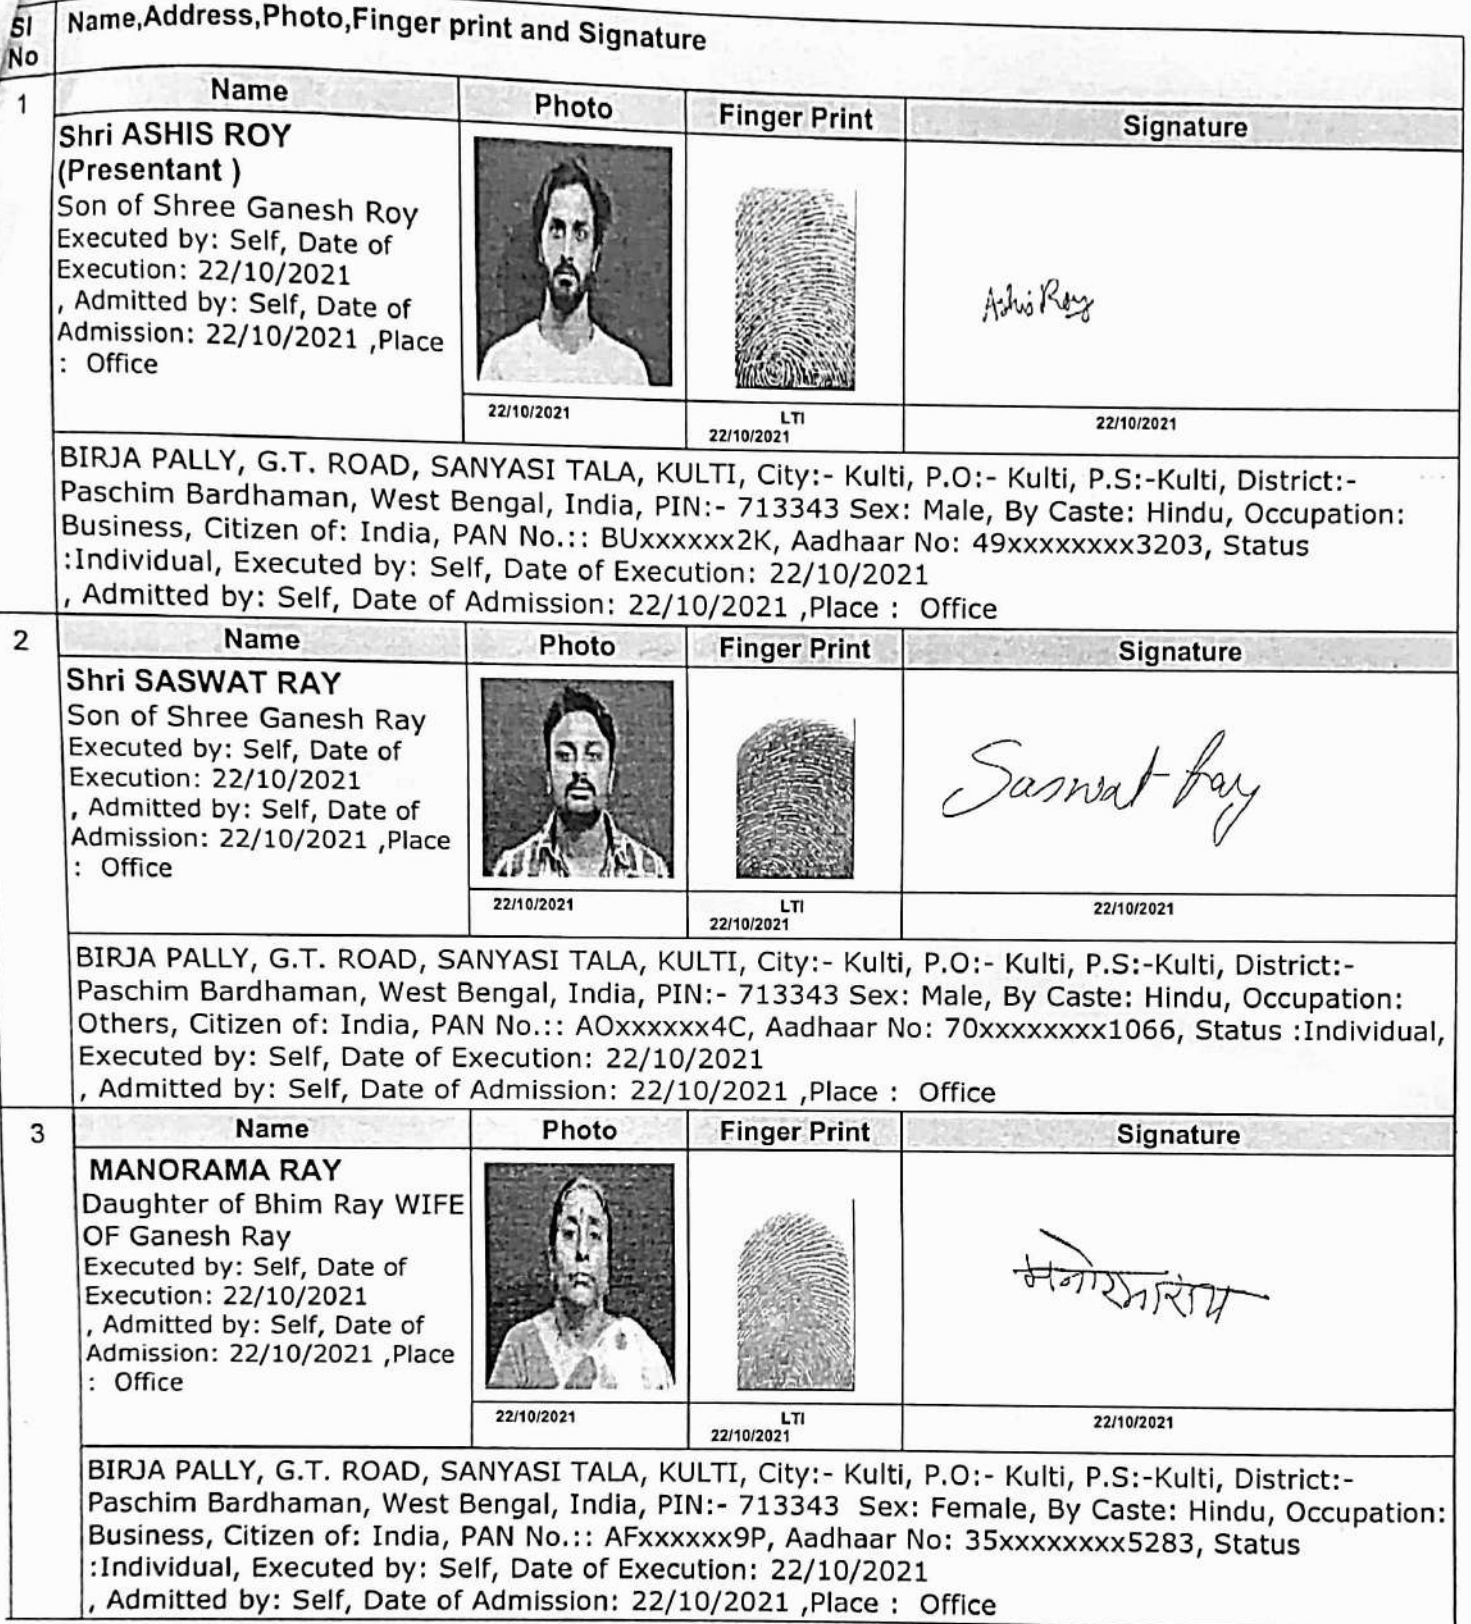 Sl
No
Name,Address,Photo,Finger print and Signature
1
Name
Photo
Finger Print
Signature
Shri ASHIS ROY
(Presentant )
Son of Shree Ganesh Roy
Executed by: Self, Date of
Execution: 22/10/2021
, Admitted by: Self, Date of
Admission: 22/10/2021 ,Place
: Office
Ashis Roy
22/10/2021
LTI
22/10/2021
22/10/2021
BIRJA PALLY, G.T. ROAD, SANYASI TALA, KULTI, City:- Kulti, P.O:- Kulti, P.S:-Kulti, District:-
Paschim Bardhaman, West Bengal, India, PIN:- 713343 Sex: Male, By Caste: Hindu, Occupation:
Business, Citizen of: India, PAN No.:: BUxxxxxx2K, Aadhaar No: 49xxxxxxxx3203, Status
:Individual, Executed by: Self, Date of Execution: 22/10/2021
, Admitted by: Self, Date of Admission: 22/10/2021 ,Place : Office
2
Name
Photo
Finger Print
Signature
Shri SASWAT RAY
Son of Shree Ganesh Ray
Executed by: Self, Date of
Execution: 22/10/2021
, Admitted by: Self, Date of
Admission: 22/10/2021 ,Place
: Office
Saswat Ray
22/10/2021
LTI
22/10/2021
22/10/2021
BIRJA PALLY, G.T. ROAD, SANYASI TALA, KULTI, City:- Kulti, P.O:- Kulti, P.S:-Kulti, District:-
Paschim Bardhaman, West Bengal, India, PIN:- 713343 Sex: Male, By Caste: Hindu, Occupation:
Others, Citizen of: India, PAN No.:: AOxxxxxx4C, Aadhaar No: 70xxxxxxxx1066, Status :Individual,
Executed by: Self, Date of Execution: 22/10/2021
, Admitted by: Self, Date of Admission: 22/10/2021 ,Place : Office
3
Name
Photo
Finger Print
Signature
MANORAMA RAY
Daughter of Bhim Ray WIFE
OF Ganesh Ray
Executed by: Self, Date of
Execution: 22/10/2021
, Admitted by: Self, Date of
Admission: 22/10/2021 ,Place
: Office
मनोरमा राय
22/10/2021
LTI
22/10/2021
22/10/2021
BIRJA PALLY, G.T. ROAD, SANYASI TALA, KULTI, City:- Kulti, P.O:- Kulti, P.S:-Kulti, District:-
Paschim Bardhaman, West Bengal, India, PIN:- 713343 Sex: Female, By Caste: Hindu, Occupation:
Business, Citizen of: India, PAN No.:: AFxxxxxx9P, Aadhaar No: 35xxxxxxxx5283, Status
:Individual, Executed by: Self, Date of Execution: 22/10/2021
, Admitted by: Self, Date of Admission: 22/10/2021 ,Place : Office